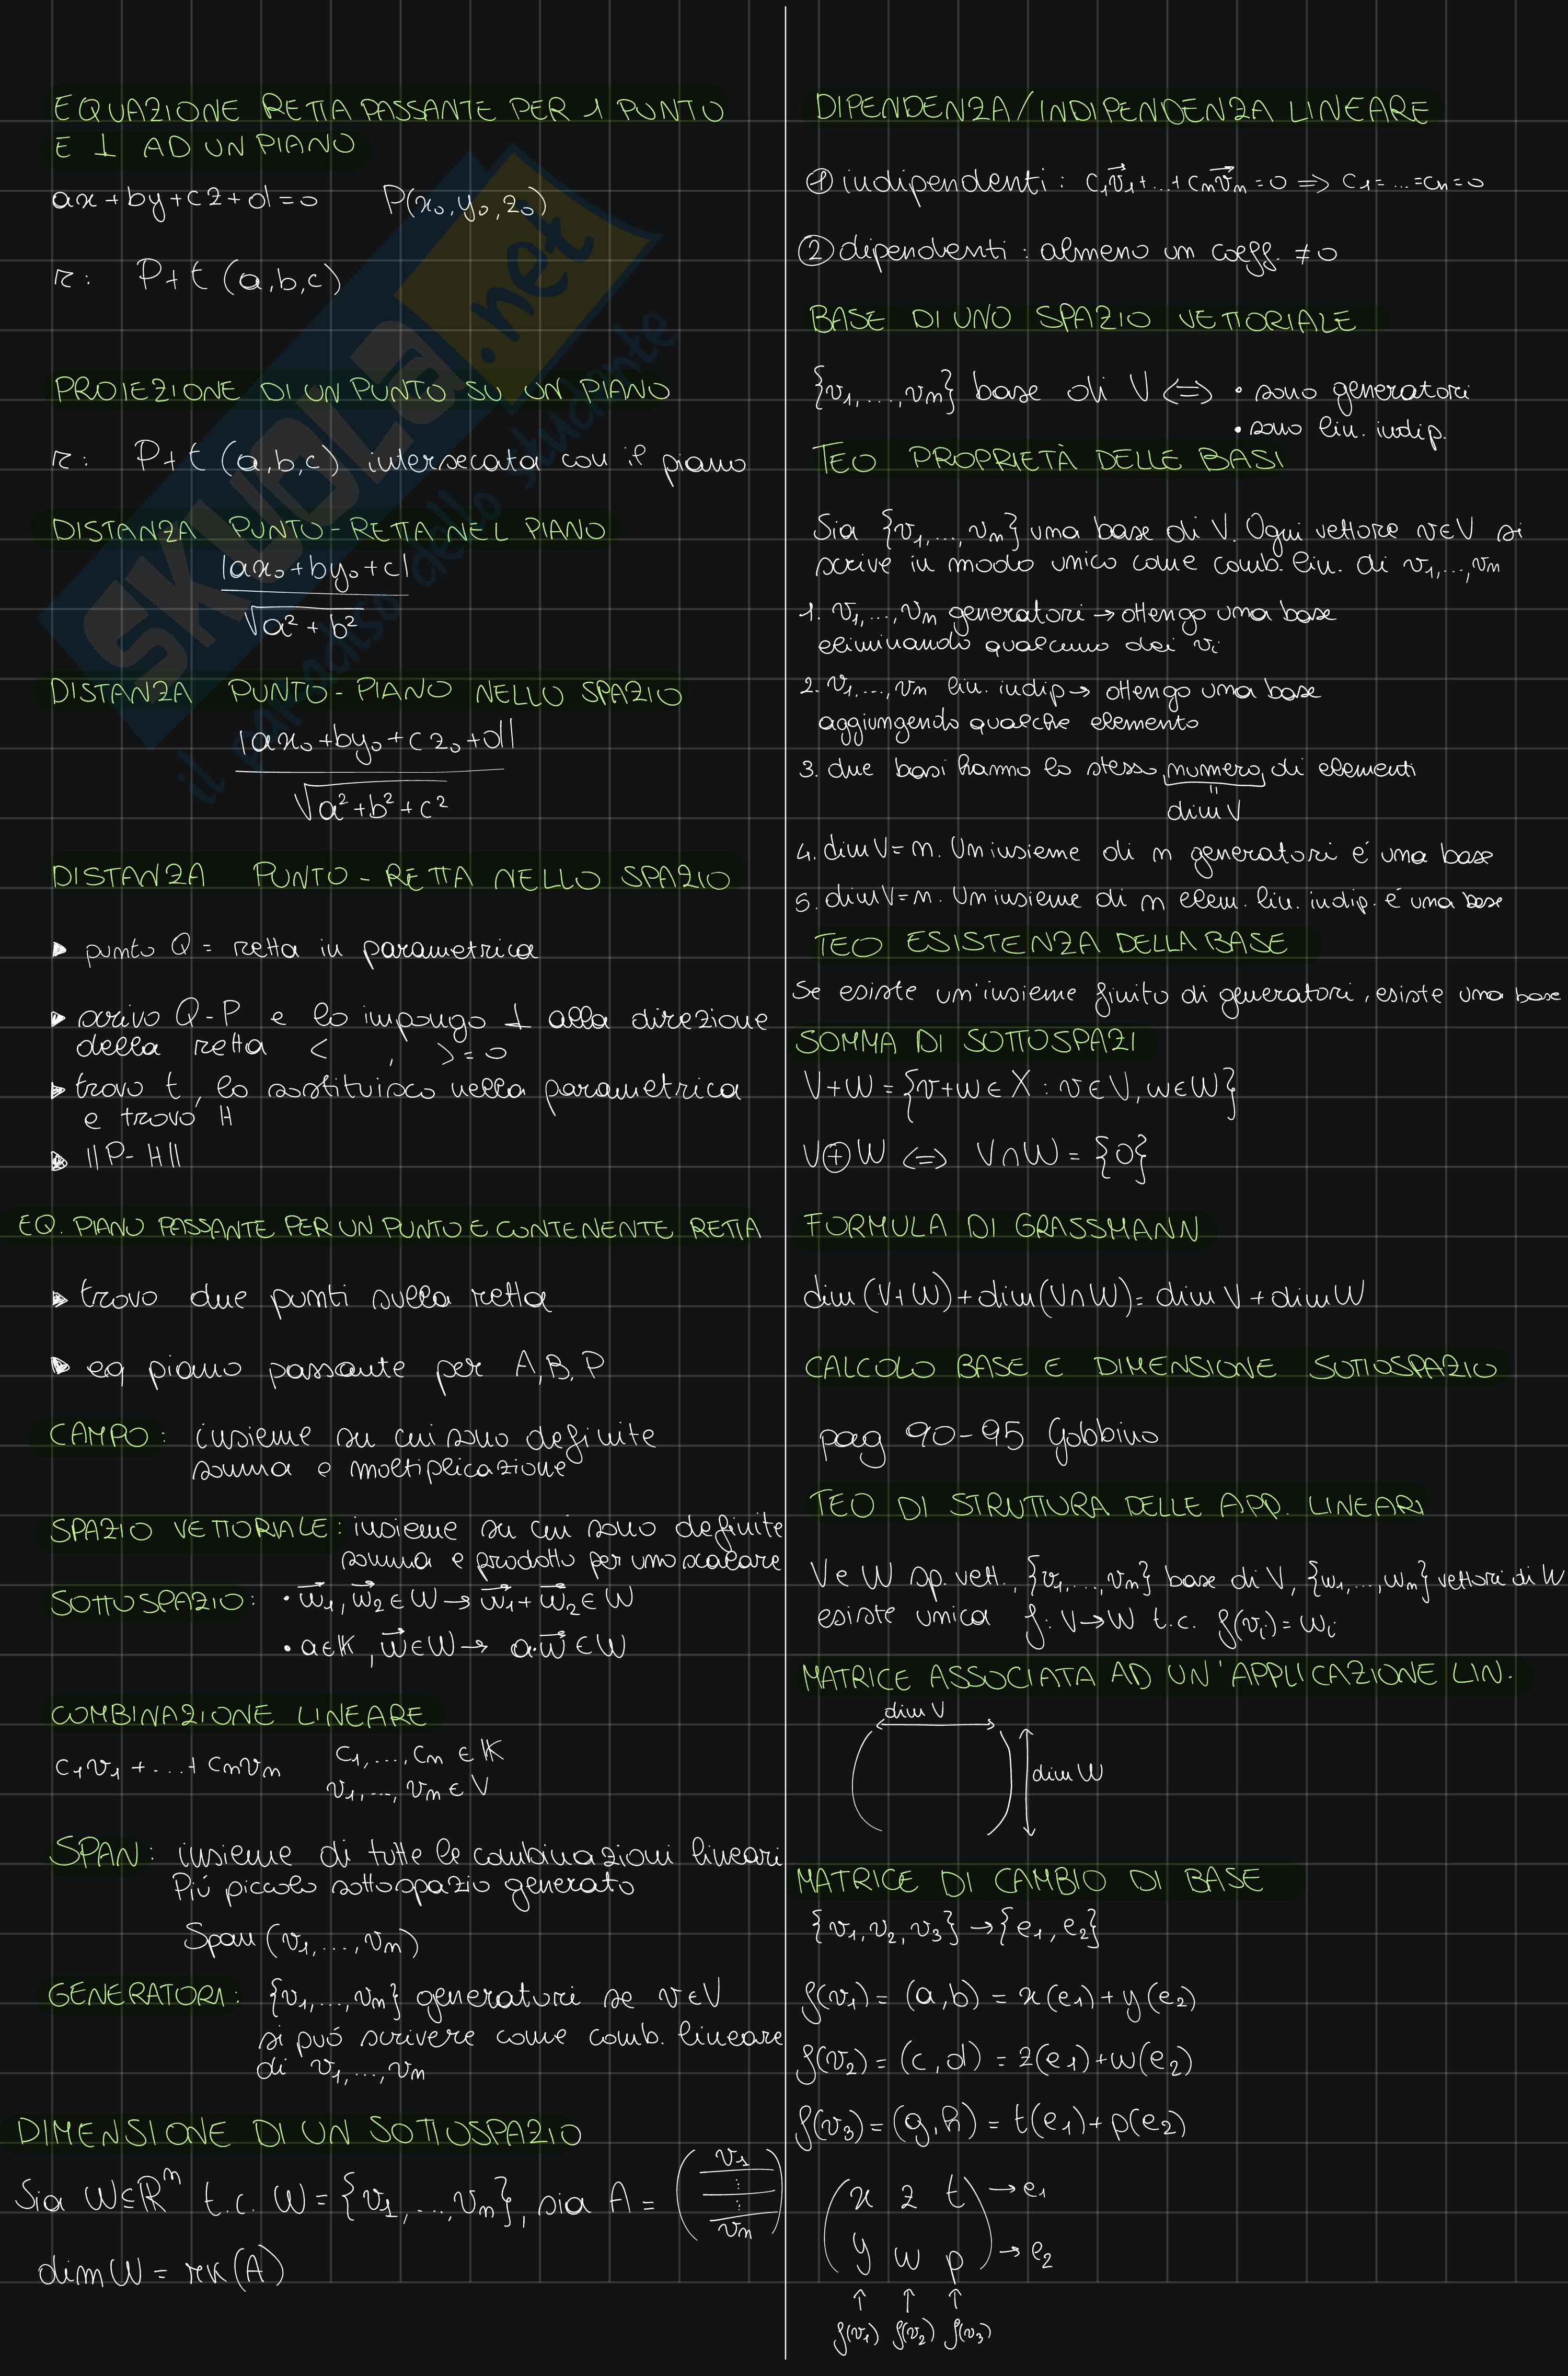 EQUAZIONE RETTA PASSANTE PER 1 PUNTO
E ⊥ AD UN PIANO
ax+by+cz+d=0 P(x₀,y₀,z₀)
r: P+t(a,b,c)
PROIEZIONE DI UN PUNTO SU UN PIANO
r: P+t(a,b,c) intersecata con il piano
DISTANZA PUNTO-RETTA NEL PIANO
|ax₀+by₀+c|
√a²+b²
DISTANZA PUNTO-PIANO NELLO SPAZIO
|ax₀+by₀+cz₀+d|
√a²+b²+c²
DISTANZA PUNTO-RETTA NELLO SPAZIO
▸ punto Q = retta in parametrica
▸ scrivo Q-P e lo impongo ⊥ alla direzione
della retta < , >=0
▸ trovo t, lo sostituisco nella parametrica
e trovo H
▸ ||P-H||
EQ. PIANO PASSANTE PER UN PUNTO E CONTENENTE RETTA
▸ trovo due punti sulla retta
▸ eq piano passante per A,B,P
CAMPO: insieme su cui sono definite
somma e moltiplicazione
SPAZIO VETTORIALE: insieme su cui sono definite
somma e prodotto per uno scalare
SOTTOSPAZIO: • w⃗₁, w⃗₂ ∈ W → w⃗₁+w⃗₂ ∈ W
• a∈𝕂, w⃗∈W → a·w⃗ ∈ W
COMBINAZIONE LINEARE
c₁v₁+...+cₙvₙ c₁,...,cₙ ∈ 𝕂
v₁,...,vₙ ∈ V
SPAN: insieme di tutte le combinazioni lineari
Più piccolo sottospazio generato
Span(v₁,...,vₙ)
GENERATORI: {v₁,...,vₙ} generatori se v∈V
si può scrivere come comb. lineare
di v₁,...,vₙ
DIMENSIONE DI UN SOTTOSPAZIO
Sia W⊆ℝⁿ t.c. W={v₁,...,vₙ}, sia A= (v₁
⋮
⋮
vₙ)
dim W = rk(A)
DIPENDENZA/INDIPENDENZA LINEARE
① indipendenti: c₁v⃗₁+...+cₙv⃗ₙ=0 ⇒ c₁=...=cₙ=0
② dipendenti: almeno un coeff. ≠0
BASE DI UNO SPAZIO VETTORIALE
{v₁,...,vₙ} base di V ⇔ • sono generatori
• sono lin. indip.
TEO PROPRIETÀ DELLE BASI
Sia {v₁,...,vₙ} una base di V. Ogni vettore v∈V si
scrive in modo unico come comb. lin. di v₁,...,vₙ
1. v₁,...,vₙ generatori → ottengo una base
eliminando qualcuno dei vᵢ
2. v₁,...,vₙ lin. indip → ottengo una base
aggiungendo qualche elemento
3. due basi hanno lo stesso numero di elementi
=
dim V
4. dim V=n. Un insieme di n generatori é una base
5. dim V=n. Un insieme di n elem. lin. indip. é una base
TEO ESISTENZA DELLA BASE
Se esiste un'insieme finito di generatori, esiste una base
SOMMA DI SOTTOSPAZI
V+W={v+w∈X : v∈V, w∈W}
V⊕W ⇔ V∩W={0}
FORMULA DI GRASSMANN
dim(V+W)+dim(V∩W)= dim V+dim W
CALCOLO BASE E DIMENSIONE SOTTOSPAZIO
pag 90-95 Gobbino
TEO DI STRUTTURA DELLE APP. LINEARI
V e W sp. vett., {v₁,...,vₙ} base di V, {w₁,...,wₙ} vettori di W
esiste unica f: V→W t.c. f(vᵢ)=wᵢ
MATRICE ASSOCIATA AD UN'APPLICAZIONE LIN.
dim V
( ) dim W
MATRICE DI CAMBIO DI BASE
{v₁,v₂,v₃}→{e₁,e₂}
f(v₁)=(a,b)=x(e₁)+y(e₂)
f(v₂)=(c,d)=z(e₁)+w(e₂)
f(v₃)=(g,h)=t(e₁)+p(e₂)
(x z t) → e₁
(y w p) → e₂
↑ ↑ ↑
f(v₁) f(v₂) f(v₃)
SKUOLA.net
il paradiso dello studente